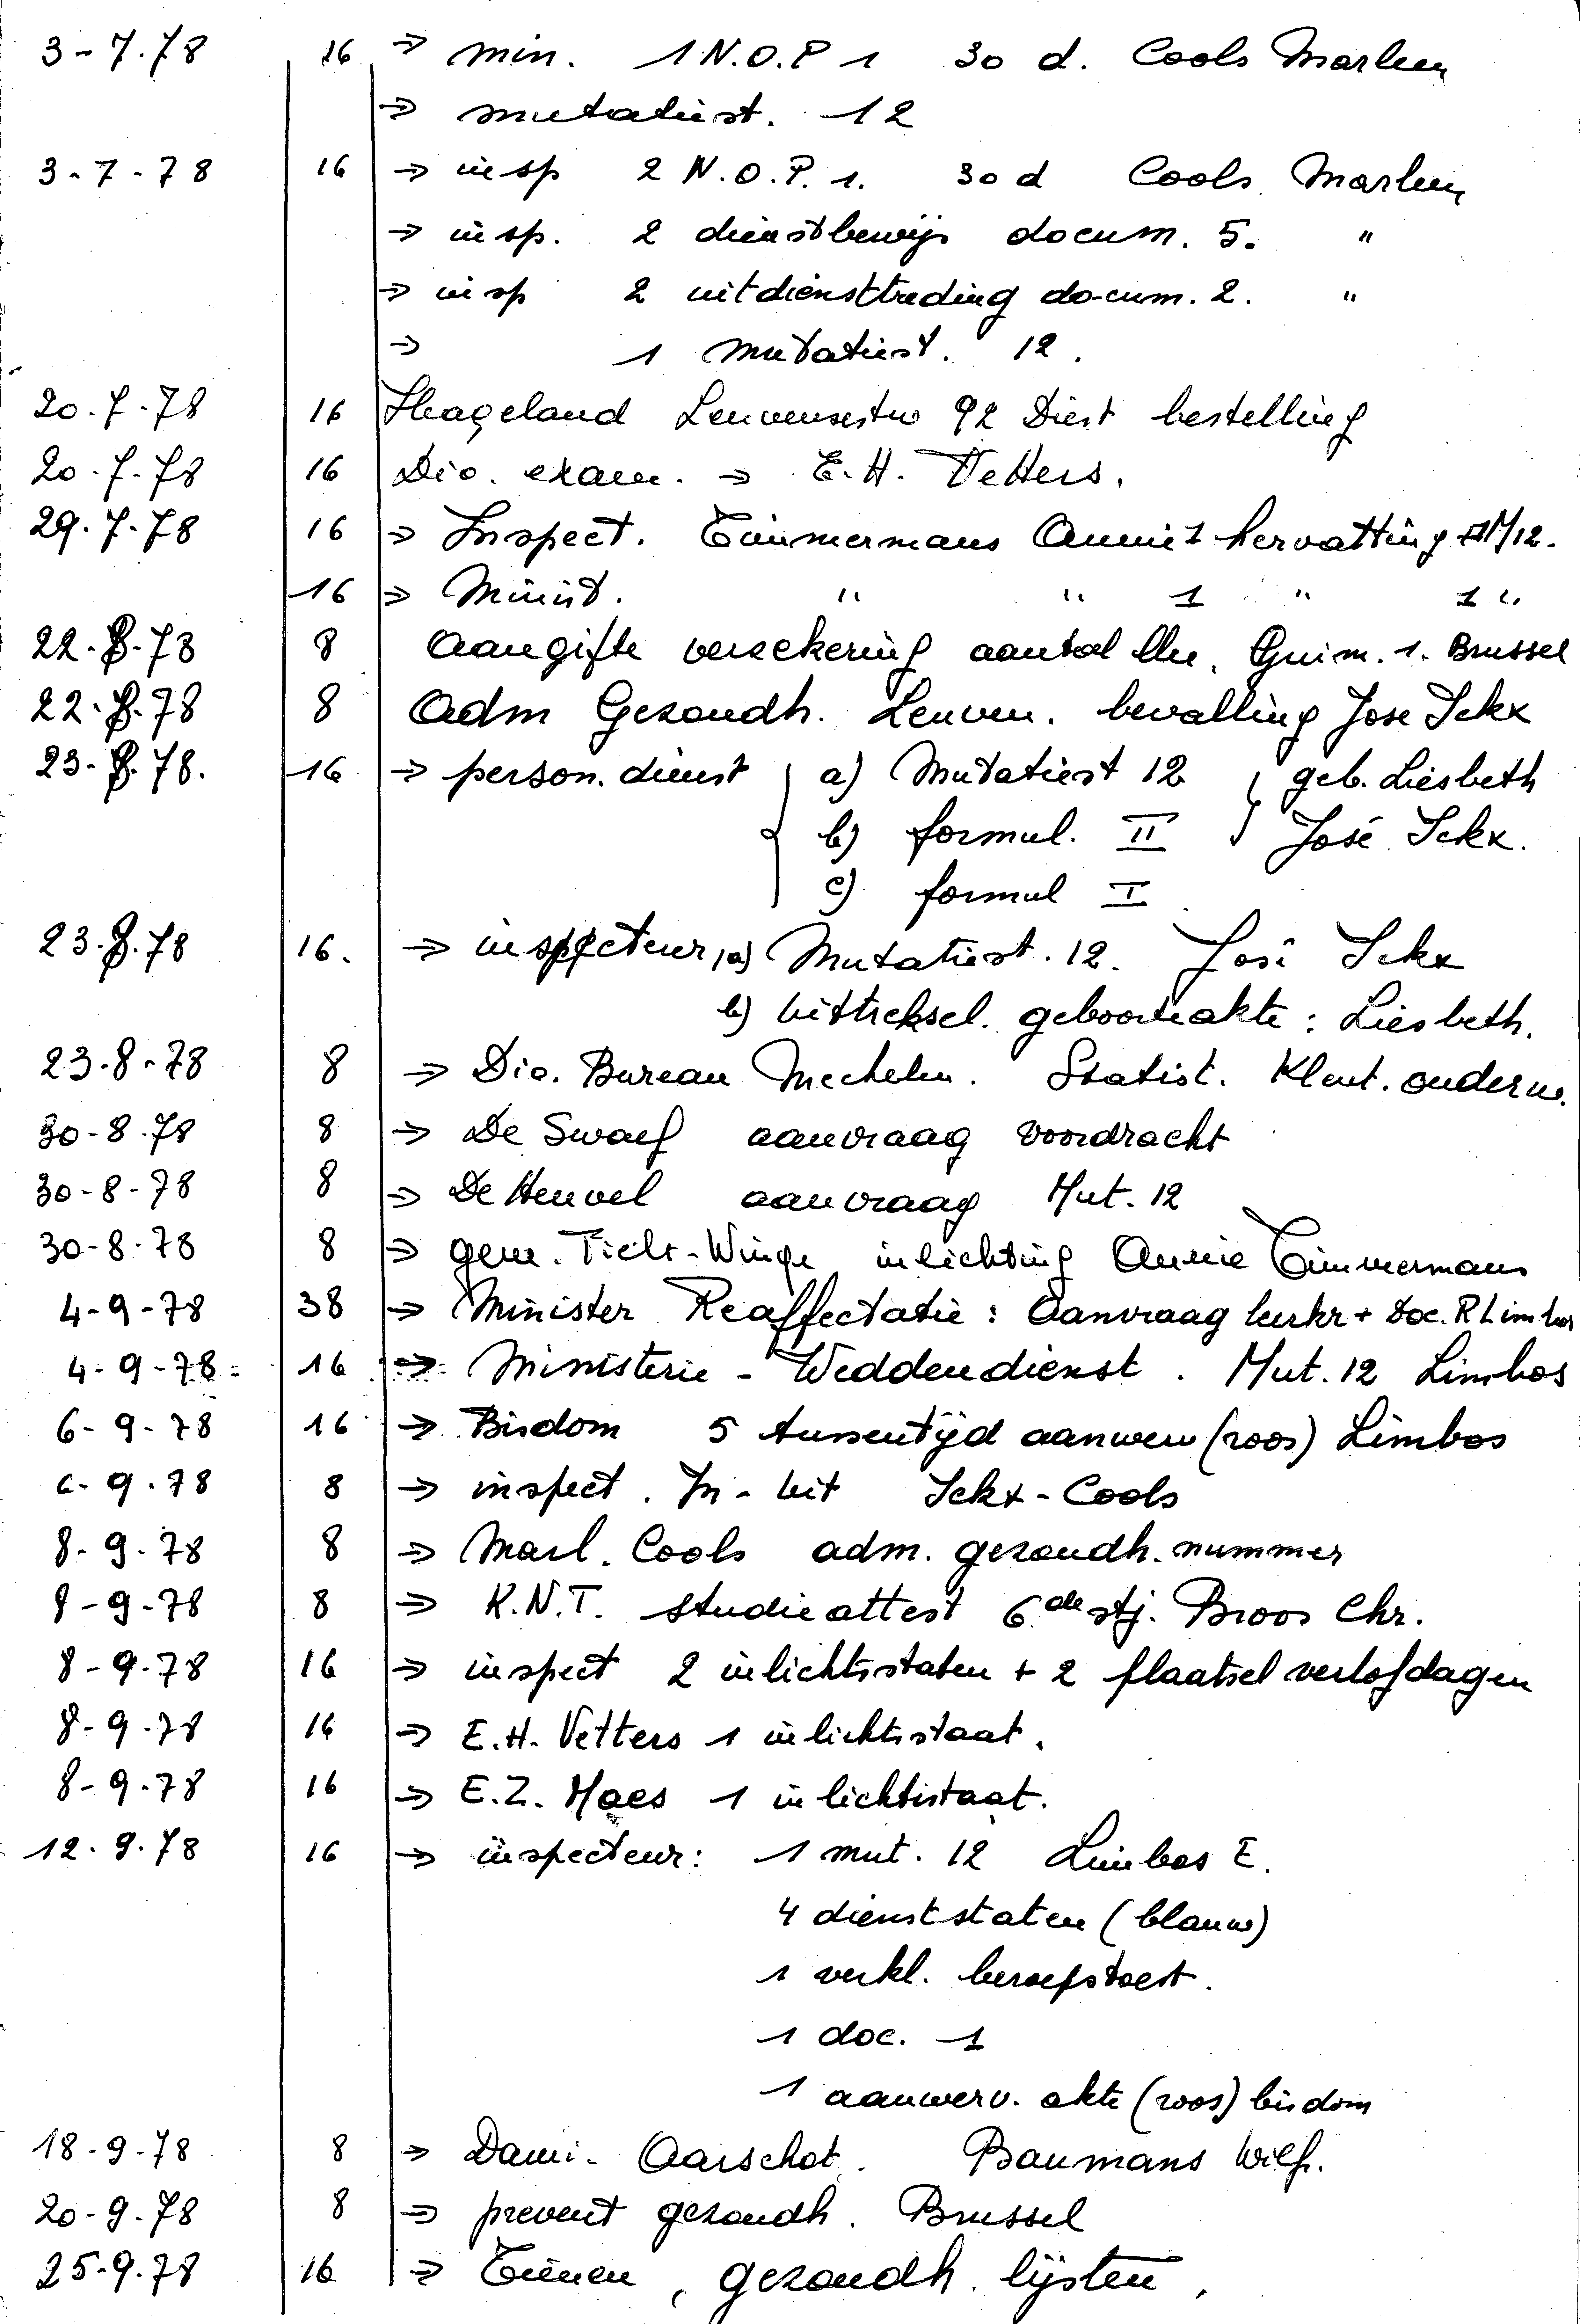 3-7.78 16 ⇒ min. 1 N.O.P 1 30 d. Cools Marleen
⇒ mutatiest. 12
3-7-78 16 ⇒ insp 2 N.O.P. 1. 30 d Cools Marleen
⇒ insp. 2 dienstbewijs docum. 5. "
⇒ insp 2 uitdiensttreding docum. 2. "
⇒ 1 mutatiest. 12.
20-7-78 16 Hageland Leuvensestw 92 Diest bestelling
20-7-78 16 Dio. exam. ⇒ E.H. Vetters.
29.7.78 16 ⇒ Inspect. Timmermans Annie 1 hervatting M/12.
16 ⇒ Minist. " " 1 " 1 "
22.8.78 8 Aangifte verzekering aantal lln. Guim. 1. Brussel
22.8.78 8 Adm Gezondh. Leuven. bevalling Jose Ickx
23.8.78. 16 ⇒ person. dienst a) Mutatiest 12 geb. Liesbeth
b) formul. II José Ickx.
c) formul I
23.8.78 16. ⇒ inspecteur, a) Mutatiest. 12. José Ickx
b) uittreksel. geboorteakte : Liesbeth.
23.8-78 8 ⇒ Dio. Bureau Mechelen. Statist. Kleut. onderw.
30-8.78 8 ⇒ De Swaef aanvraag voordracht
30-8-78 8 ⇒ De Heuvel aanvraag Mut. 12
30-8-78 8 ⇒ gem. Tielt-Winge inlichting Annie Timmermans
4-9-78 38 ⇒ Minister Reaffectatie : Aanvraag leerkr + doc. R Limbos
4-9-78 16 ⇒ Ministerie - Weddendienst. Mut. 12 Limbos
6-9-78 16 ⇒ Bisdom 5 tussentijd aanwerv (roos) Limbos
6-9.78 8 ⇒ inspect. In-uit Ickx-Cools
8-9-78 8 ⇒ Marl. Cools adm. gezondh. nummer
8-9-78 8 ⇒ K.N.T. studieattest 6de stj. Broos Chr.
8-9-78 16 ⇒ inspect 2 inlichtsstaten + 2 plaatsel verlofdagen
8-9-78 16 ⇒ E.H. Vetters 1 inlichtsstaat.
8-9-78 16 ⇒ E.Z. Maes 1 inlichtsstaat.
12.9.78 16 ⇒ inspecteur: 1 mut. 12 Limbos E.
4 dienststaten (blauw)
1 verkl. beroepstoest.
1 doc. 1
1 aanwerv. akte (roos) bisdom
18-9-78 8 ⇒ Dami- Aarschot. Baumans Wilf.
20-9-78 8 ⇒ prevent gezondh. Brussel
25-9.78 16 ⇒ Tienen, gezondh. lijsten.